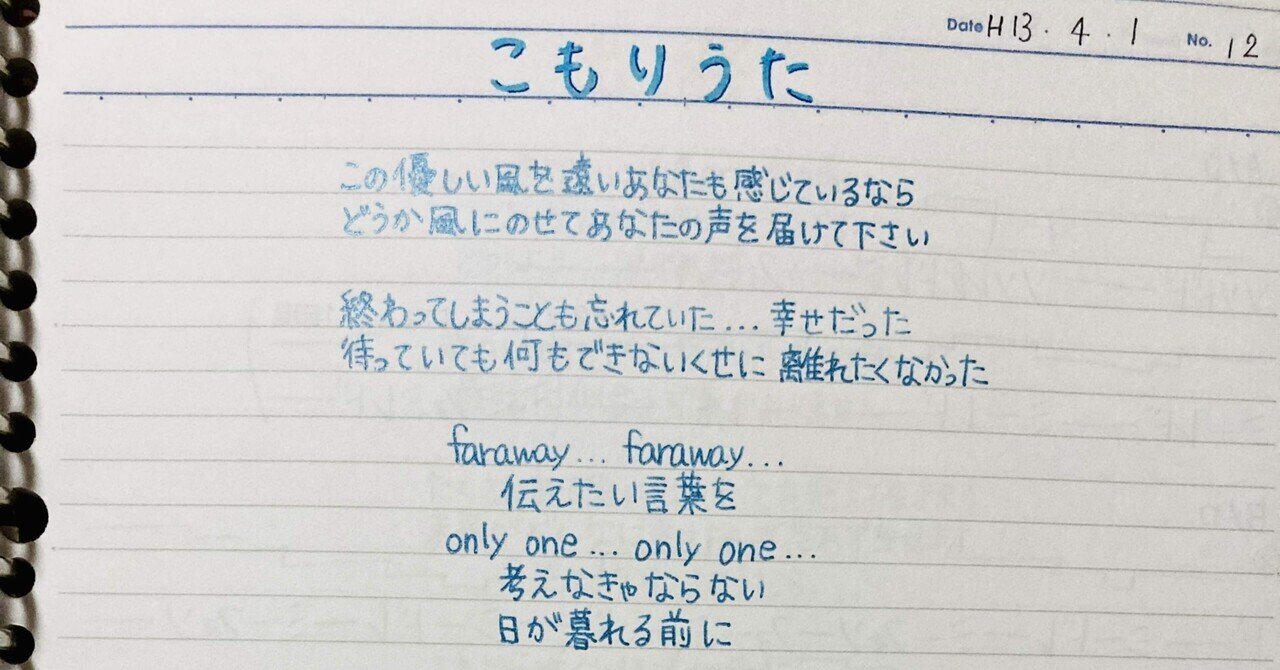 Date H13・4・1 No. 12
こもりうた
この優しい風を遠いあなたも感じているなら
どうか風にのせてあなたの声を届けて下さい
終わってしまうことも忘れていた…幸せだった
待っていても何もできないくせに 離れたくなかった
faraway... faraway...
伝えたい言葉を
only one... only one...
考えなきゃならない
日が暮れる前に